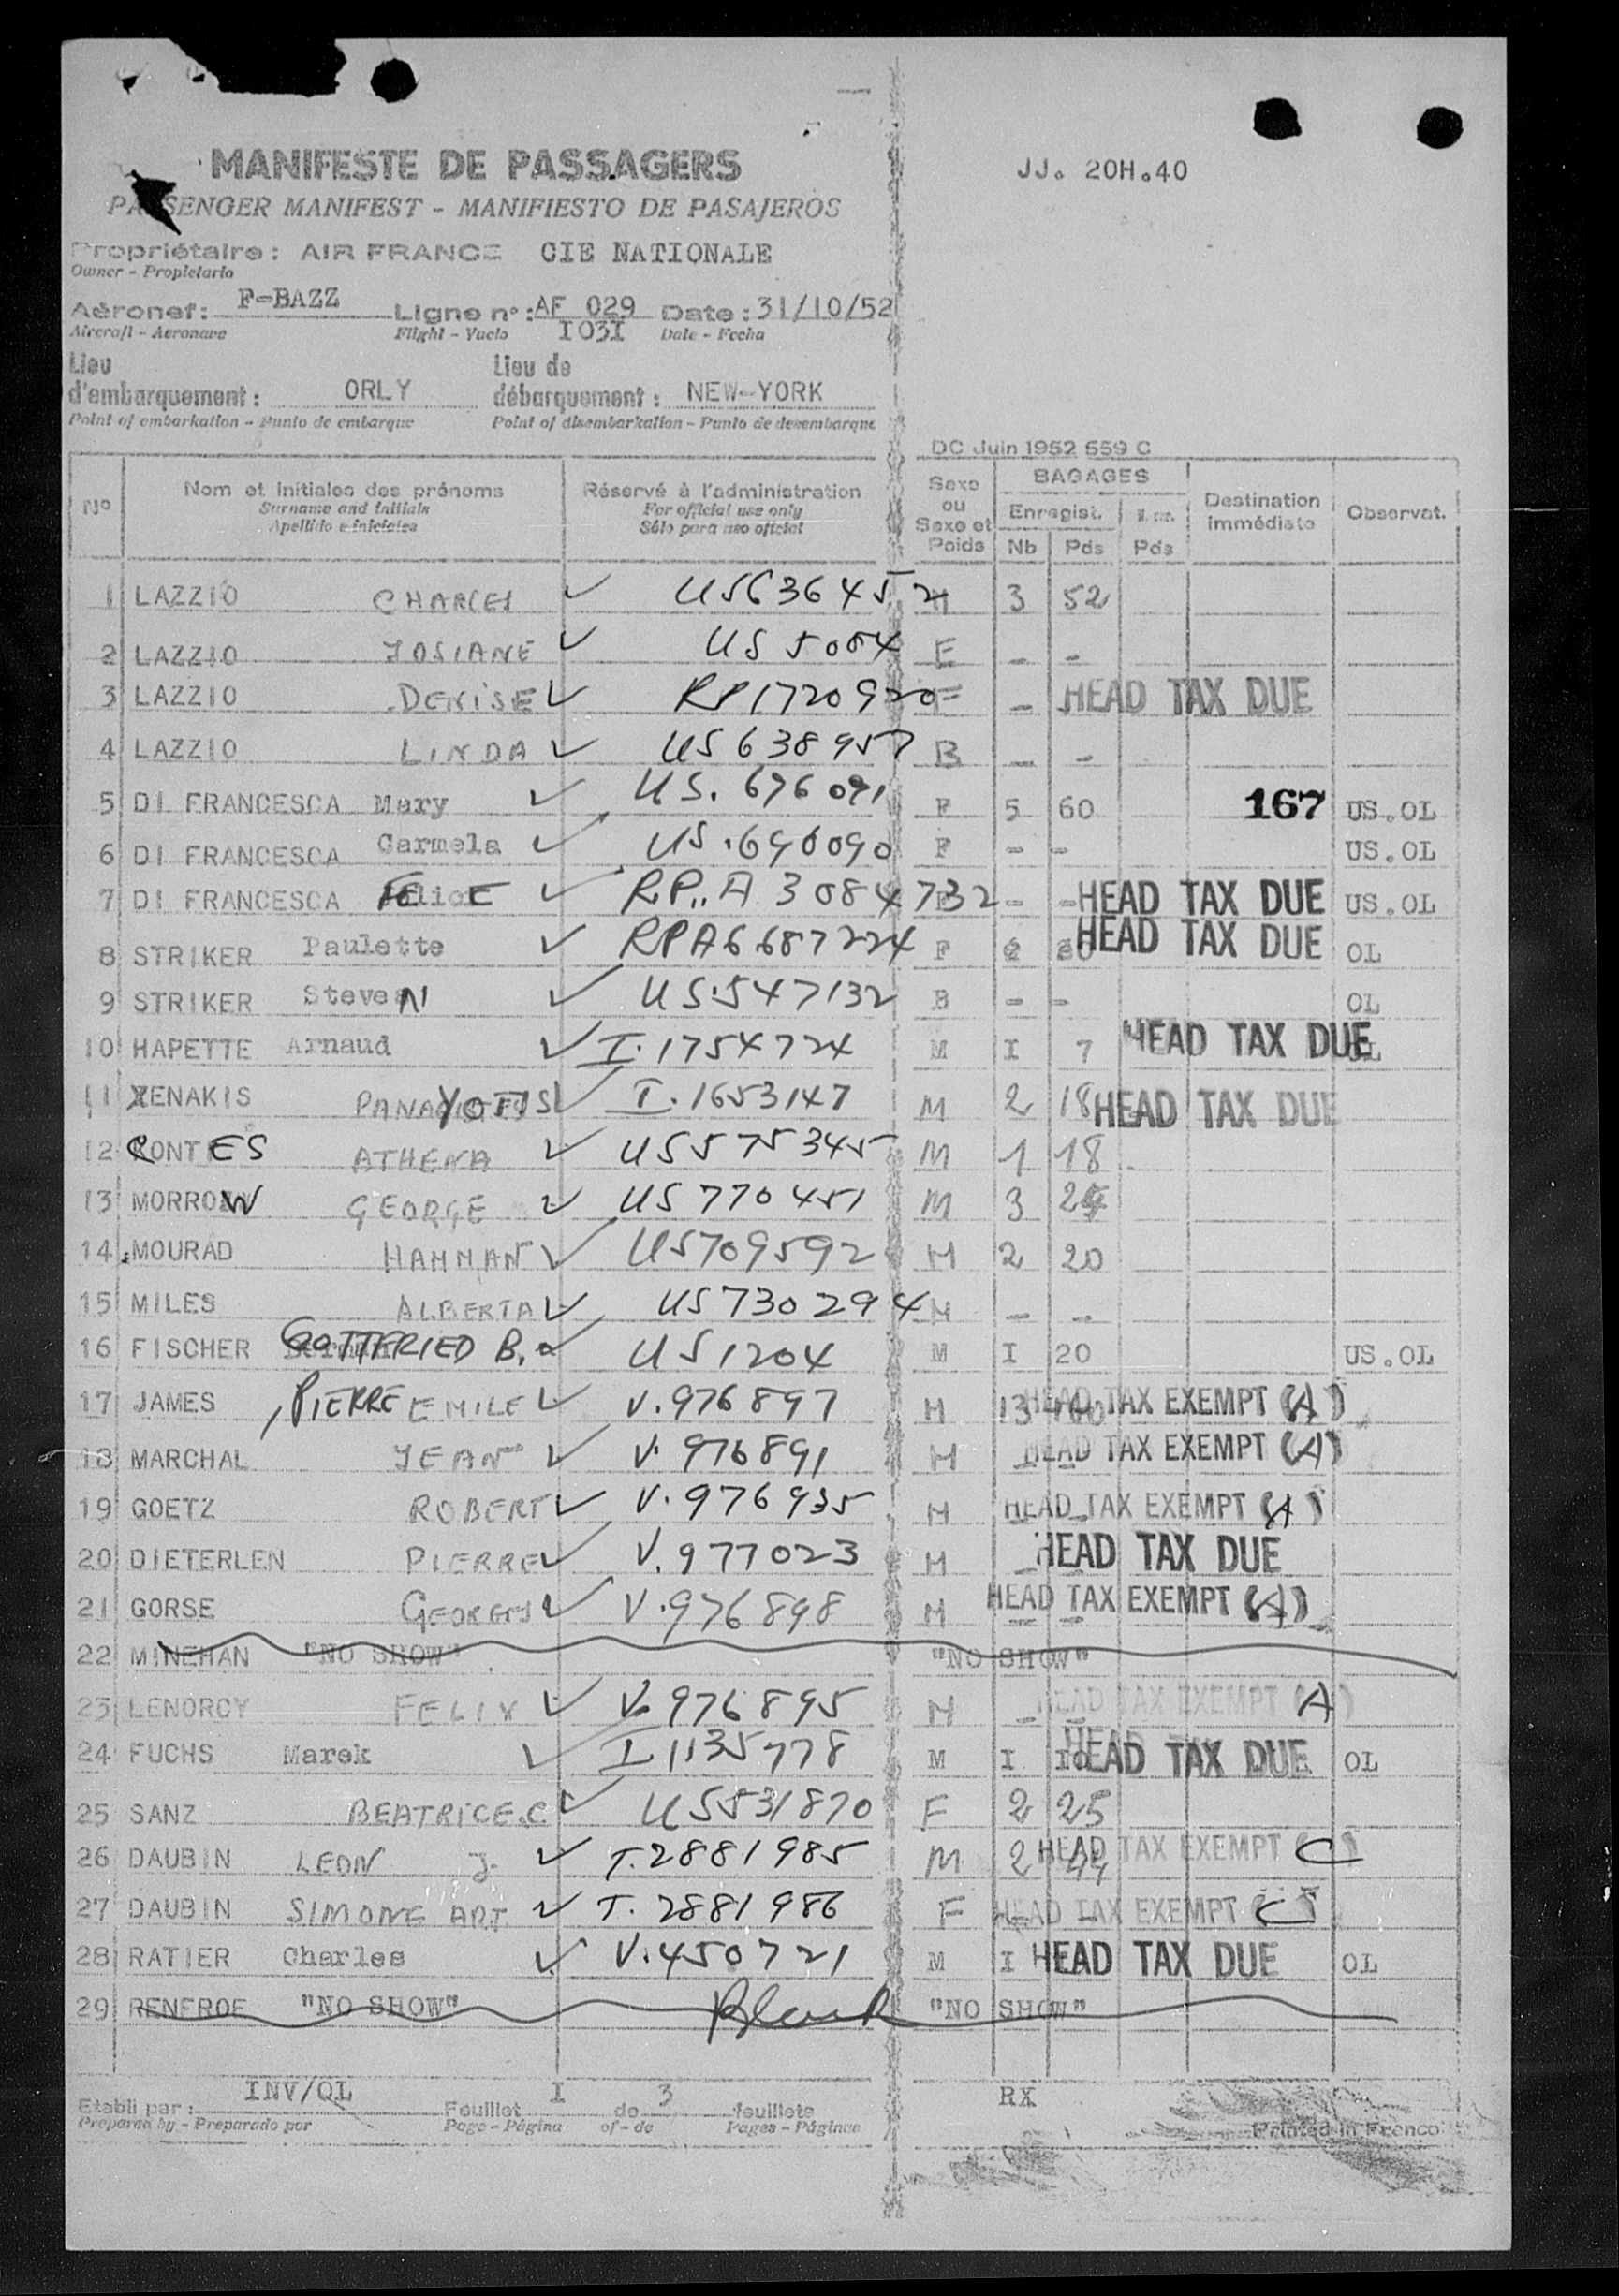 MANIFESTE DE PASSAGERS
JJ. 20H.40
PASSENGER MANIFEST - MANIFIESTO DE PASAJEROS
Propriétaire : AIR FRANCE CIE NATIONALE
Owner - Propietario
Aéronef : F-BAZZ Ligne n° : AF 029 Date : 31/10/52
Aircraft - Aeronave Flight - Vuelo I03I Date - Fecha
Lieu d'embarquement : ORLY Lieu de débarquement : NEW-YORK
Point of embarkation - Punto de embarque Point of disembarkation - Punto de desembarque
DC Juin 1952 559 C
N° Nom et initiales des prénoms Réservé à l'administration Sexe ou Sexe et Poids BAGAGES Destination immédiate Observat.
Surname and initials For official use only Enregist.
Apellido e iniciales Sólo para uso oficial Nb Pds Pds
1 LAZZIO CHARLES US636452 3 52
2 LAZZIO JOSIANE US 5004 F - -
3 LAZZIO DENISE RP1720920 F - HEAD TAX DUE
4 LAZZIO LINDA US 638957 B - -
5 DI FRANCESCA Mary US. 676091 F 5 60 167 US.OL
6 DI FRANCESCA Carmela US.690090 F - - US.OL
7 DI FRANCESCA RP.. A 3084732 - - HEAD TAX DUE US.OL
8 STRIKER Paulette RPA6687224 F HEAD TAX DUE OL
9 STRIKER Steven US.547132 B - - OL
10 HAPETTE Arnaud I.1754724 M I 7 HEAD TAX DUE
11 XENAKIS PANAYOTIS I.1653147 M 2 18 HEAD TAX DUE
12 CONTES ATHENA US575345 M 1 18
13 MORROW GEORGE US 770451 M 3
14 MOURAD HAMMAN US709592 M 2 20
15 MILES ALBERTA US730294 M - -
16 FISCHER GOTTFRIED B. US1204 M I 20 US.OL
17 JAMES , PIERRE EMILE V.976897 M 13 HEAD TAX EXEMPT (A)
18 MARCHAL JEAN V.976891 M HEAD TAX EXEMPT (A)
19 GOETZ ROBERT V.976935 M HEAD TAX EXEMPT (A)
20 DIETERLEN PIERRE V.977023 M HEAD TAX DUE
21 GORSE GEORGES V.976898 M HEAD TAX EXEMPT (A)
22 MINEHAN "NO SHOW" "NO SHOW"
23 LENORCY FELIX V.976895 M - - HEAD TAX EXEMPT (A)
24 FUCHS Marek I1135778 M I HEAD TAX DUE OL
25 SANZ BEATRICE.C. US531870 F 2 25
26 DAUBIN LEON J. T.2881985 M 2 44 HEAD TAX EXEMPT (C)
27 DAUBIN SIMONE ART. T.2881986 F HEAD TAX EXEMPT (C)
28 RATIER Charles V.450721 M I HEAD TAX DUE OL
29 RENFROE "NO SHOW" "NO SHOW"
Etabli par : INV/OL Feuillet I de 3 feuillets RX
Prepared by - Preparado por Page - Página of - de Pages - Páginas Printed in France